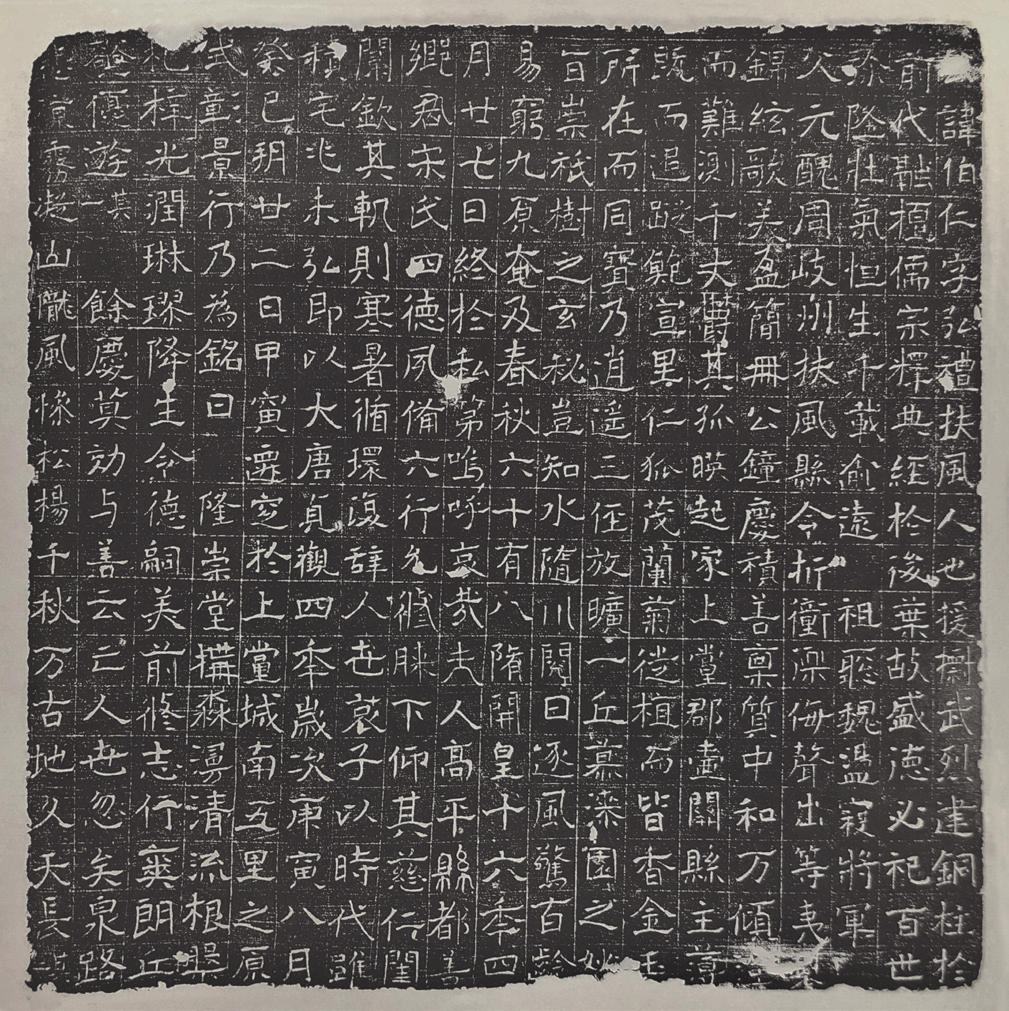 諱伯仁字弘禮扶風人也援樹武烈建銅柱於
前代融標儒宗釋典經於後葉故盛德必祀百世
墜壯氣恒生千載俞遠祖聡魏盪寇將軍
父元醜周歧州扶風縣令折衝禦侮聲出等夷
錦絃歌美盈簡冊公鐘慶積善稟質中和万傾
而難測千丈欝其孤暎起家上黨郡壷關縣主
既而退蹤鄭宣里仁狐茂蘭菊從植而皆香金玉
所在而同寶乃逍遥三徑放曠一丘慕漆園之
百崇祇樹之玄秘豈知水隨川閱日逐風驚百齡
易窮九原奄及春秋六十有八隋開皇十六年四
月廿七日終於私第嗚呼哀哉夫人高平縣都
郷君宋氏四德夙備六行允脩脒下仰其慈仁閨
閫欽其軌則寒暑循環復辞人世哀子以時代雖
積宅兆未弘即以大唐貞觀四年歲次庚寅八月
癸巳玥廿二日甲寅遷窆於上黨城南五里之原
式彰景行乃為銘曰 隆崇堂構森漫清流根盤
杞梓光潤琳璆降生令德嗣美前修志行爽朗丘
優遊一其 餘慶莫効与善云亡人世忽矣泉路
霧凝山隴風悽松楊千秋万古地久天長